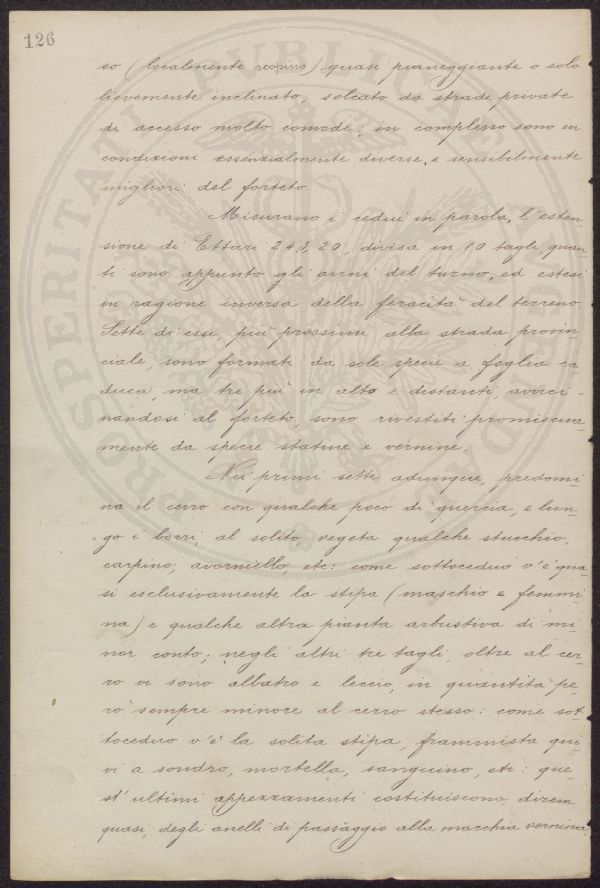 126
so (localmente scopino) quasi pianeggiante o solo
lievemente inclinato, solcato da strade private
di accesso molto comode; in complesso sono in
condizioni essenzialmente diverse, e sensibilmente
migliori del forteto.
Misurano i cedui in parola, l'esten-
sione di Ettari 243,20, divisa in 10 tagli, quan-
ti sono appunto gli anni del turno, ed estesi
in ragione inversa della feracità del terreno.
Sette di essi, più prossimi alla strada provin-
ciale, sono formati da sole specie a foglia ca-
duca, ma tre più in alto e distanti, avvici-
nandosi al forteto, sono rivestiti promiscua-
mente da specie statine e vernine.
Nei primi sette adunque, predomi-
na il cerro con qualche poco di quercia, e lun-
go i borri, al solito, vegeta qualche stucchio,
carpino, avorniello, etc: come sottoceduo v'è qua-
si esclusivamente la stipa (maschio e femmi-
na) e qualche altra pianta arbustiva di mi-
nor conto; negli altri tre tagli, oltre al cer-
ro vi sono albatro e leccio, in quantità pe-
rò sempre minore al cerro stesso: come sot-
toceduo v'è la solita stipa, frammista qui-
vi a sondro, mortella, sanguino, etc: que-
st'ultimi appezzamenti costituiscono, direm
quasi, degli anelli di passaggio alla macchia vernina
PROSPERITATI PVBLICAE AVGENDAE